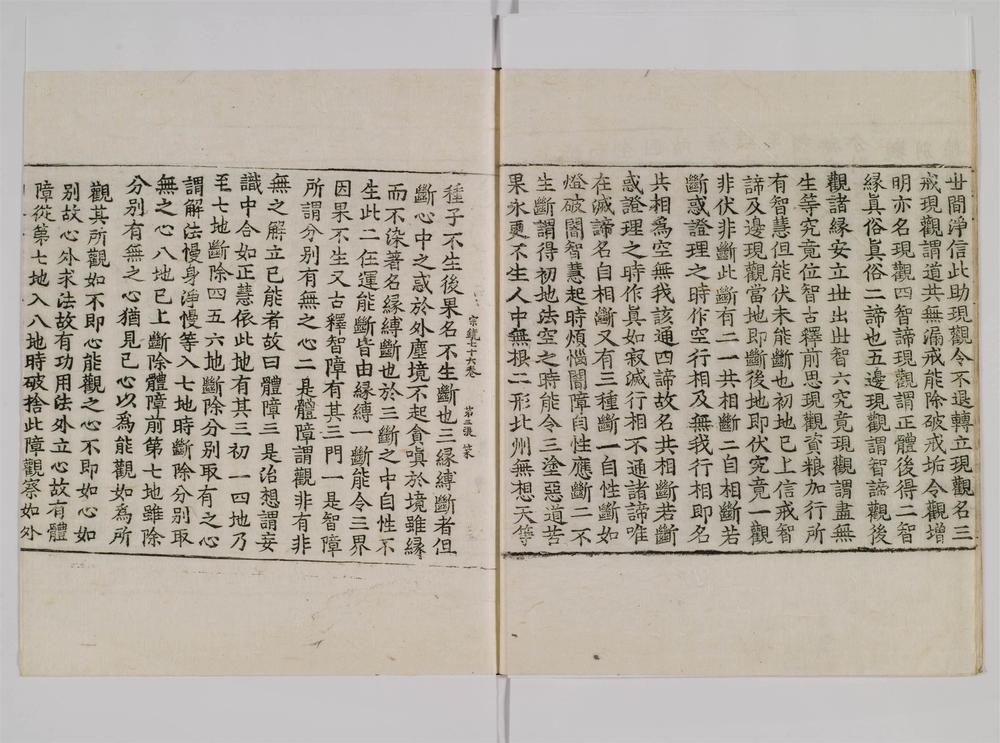 世間淨信此助現觀令不退轉立現觀名三
戒現觀謂道共無漏戒能除破戒垢令觀增
明亦名現觀四智諦現觀謂正體後得二智
緣眞俗眞俗二諦也五邊現觀謂智諦觀後
觀諸緣安立世出世智六究竟現觀謂盡無
生等究竟位智古釋前思現觀資粮加行所
有智慧但能伏未能斷也初地已上信戒智
諦及邊現觀當地即斷後地即伏究竟一觀
非伏非斷此斷有二一共相斷二自相斷若
斷惑證理之時作空行相及無我行相即名
共相爲空無我該通四諦故名共相斷若斷
惑證理之時作眞如寂滅行相不通諸諦唯
在滅諦名自相斷又有三種斷一自性斷如
燈破闇智慧起時煩惱闇障自性應斷二不
生斷謂得初地法空之時能令三塗惡道苦
果永更不生人中無根二形北州無想天等
宗鏡七十六卷 第三張
種子不生後果名不生斷也三緣縛斷者但
斷心中之惑於外塵境不起貪嗔於境雖緣
而不染著名緣縛斷也於三斷之中自性不
生此二任運能斷皆由緣縛一斷能令三界
因果不生又古釋智障有其三門一是智障
所謂分別有無之心二是體障謂觀非有非
無之解立已能者故曰體障三是治想謂妄
識中合如正慧依此地有其三初一四地乃
至七地斷除四五六地斷除分別取有之心
謂解法慢身淨慢等入七地時斷除分別取
無之心八地已上斷除體障前第七地雖除
分別有無之心猶見已心以爲能觀如爲所
觀其所觀如不即心能觀之心不即如心如
別故心外求法故有功用法外立心故有體
障從第七地入八地時破捨此障觀察如外